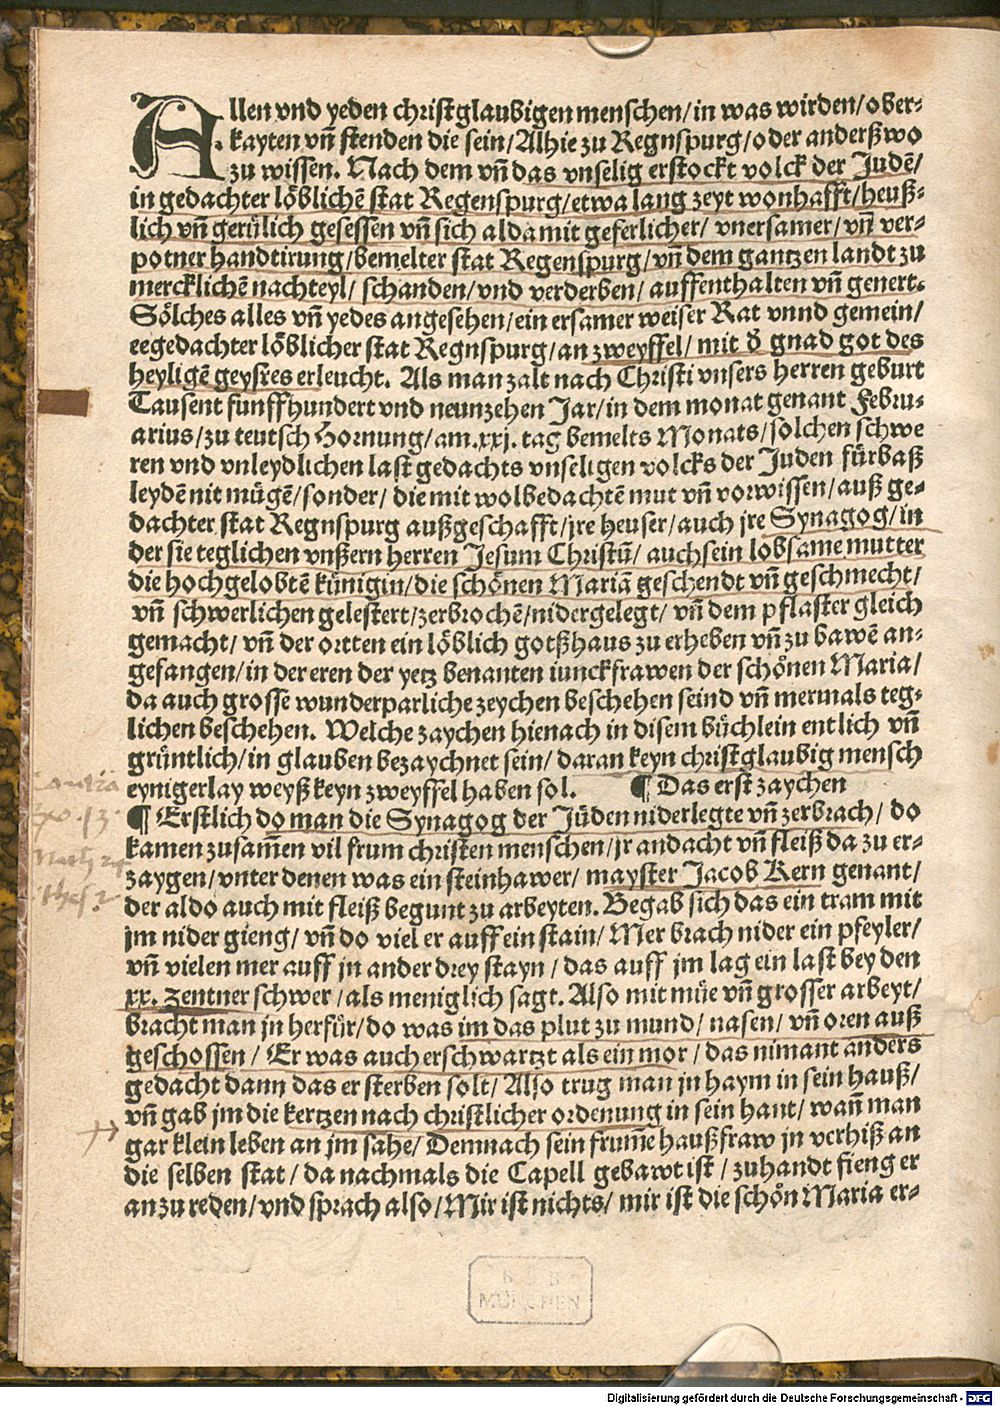 Allen vnd yeden christglaubigen menschen/ in was wirden/ ober⸗
kayten vn̄ stenden die sein/ Alhie zu Regnspurg/ oder anderßwo
zu wissen. Nach dem vn̄ das vnselig erstockt volck der Judē/
in gedachter löblichē stat Regenspurg/ etwa lang zeyt wonhafft/ heuß⸗
lich vn̄ gerülich gesessen vn̄ sich alda mit geferlicher/ vnersamer/ vn̄ ver⸗
potner handtirung/ bemelter stat Regenspurg/ vn̄ dem gantzen landt zu
mercklichē nachteyl/ schanden/ vnd verderben/ auffenthalten vn̄ genert.
Sölches alles vn̄ yedes angesehen/ ein ersamer weiser Rat vnnd gemein/
eegedachter löblicher stat Regnspurg/ an zweyffel/ mit d̓ gnad got des
heyligē geystes erleucht. Als man zalt nach Christi vnsers herren geburt
Tausent funffhundert vnd neunzehen Jar/ in dem monat genant Febru⸗
arius/ zu teutsch Hornung/ am .xxj. tag bemelts Monats/ solchen schwe
ren vnd vnleydlichen last gedachts vnseligen volcks der Juden fürbaß
leydē nit mügē/ sonder/ die mit wolbedachtē mut vn̄ vorwissen/ auß ge⸗
dachter stat Regnspurg außgeschafft/ jre heuser/ auch jre Synagog/ in
der sie teglichen vnßern herren Jesum Christū/ auch sein lobsame mutter
die hochgelobtē künigin/ die schönen Mariā geschendt vn̄ geschmecht/
vn̄ schwerlichen gelestert/ zerbrochē/ nidergelegt/ vn̄ dem pflaster gleich
gemacht/ vn̄ der ortten ein löblich gotßhaus zu erheben vn̄ zu bawē an⸗
gefangen/ in der eren der yetz benanten iunckfrawen der schönen Maria/
da auch grosse wunderparliche zeychen beschehen seind vn̄ mermals teg⸗
lichen beschehen. Welche zaychen hienach in disem büchlein entlich vn̄
grüntlich/ in glauben bezaychnet sein/ daran keyn christglaubig mensch
eynigerlay weyß keyn zweyffel haben sol. ¶ Das erst zaychen
¶ Erstlich do man die Synagog der Jüden niderlegte vn̄ zerbrach/ do
kamen zusam̄en vil frum christen menschen/ jr andacht vn̄ fleiß da zu er⸗
zaygen/ vnter denen was ein steinhawer/ mayster Jacob Kern genant/
der aldo auch mit fleiß begunt zu arbeyten. Begab sich das ein tram mit
jm nider gieng/ vn̄ do viel er auff ein stain/ Mer brach nider ein pfeyler/
vn̄ vielen mer auff jn ander drey stayn/ das auff jm lag ein last bey den
xx. Zentner schwer/ als meniglich sagt. Also mit müe vn̄ grosser arbeyt/
bracht man jn herfür/ do was im das plut zu mund/ nasen/ vn̄ oren auß
geschossen/ Er was auch erschwartzt als ein mor/ das nimant anders
gedacht dann das er sterben solt/ Also trug man jn haym in sein hauß/
vn̄ gab jm die kertzen nach christlicher ordenung in sein hant/ wan̄ man
gar klein leben an jm sahe/ Demnach sein frum̄e haußfraw jn verhiß an
die selben stat/ da nachmals die Capell gebawt ist/ zuhandt fieng er
an zu reden/ vnd sprach also/ Mir ist nichts/ mir ist die schön Maria er⸗
MÜNCHEN
Digitalisierung gefördert durch die Deutsche Forschungsgemeinschaft - DFG